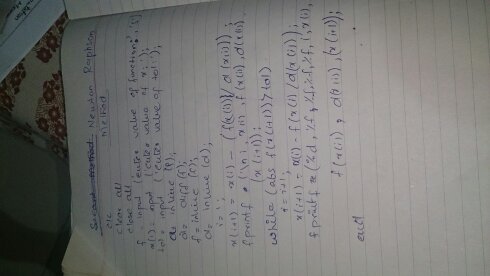 Newton Raphson
Method
clc
clear all
close all
f = input ('enter value of function:', 's')
x(1) = input ('enter value of x:');
tol = input ('enter value of tol:');
d = diff (f);
f = inline (f);
d = inline (d);
i = 1;
x(i+1) = x(i) - (f(x(i)) / d(x(i)));
fprintf ('\n', x(i), f(x(i)), d(x(i)),
(x(i+1));
while (abs f(x(i+1)) > tol)
i = i+1;
x(i+1) = x(i) - f(x(i) / d(x(i));
fprintf (%d %f, %f, %f, %f, (i, x(i),
f(x(i)), d(x(i)), (x(i+1));
end